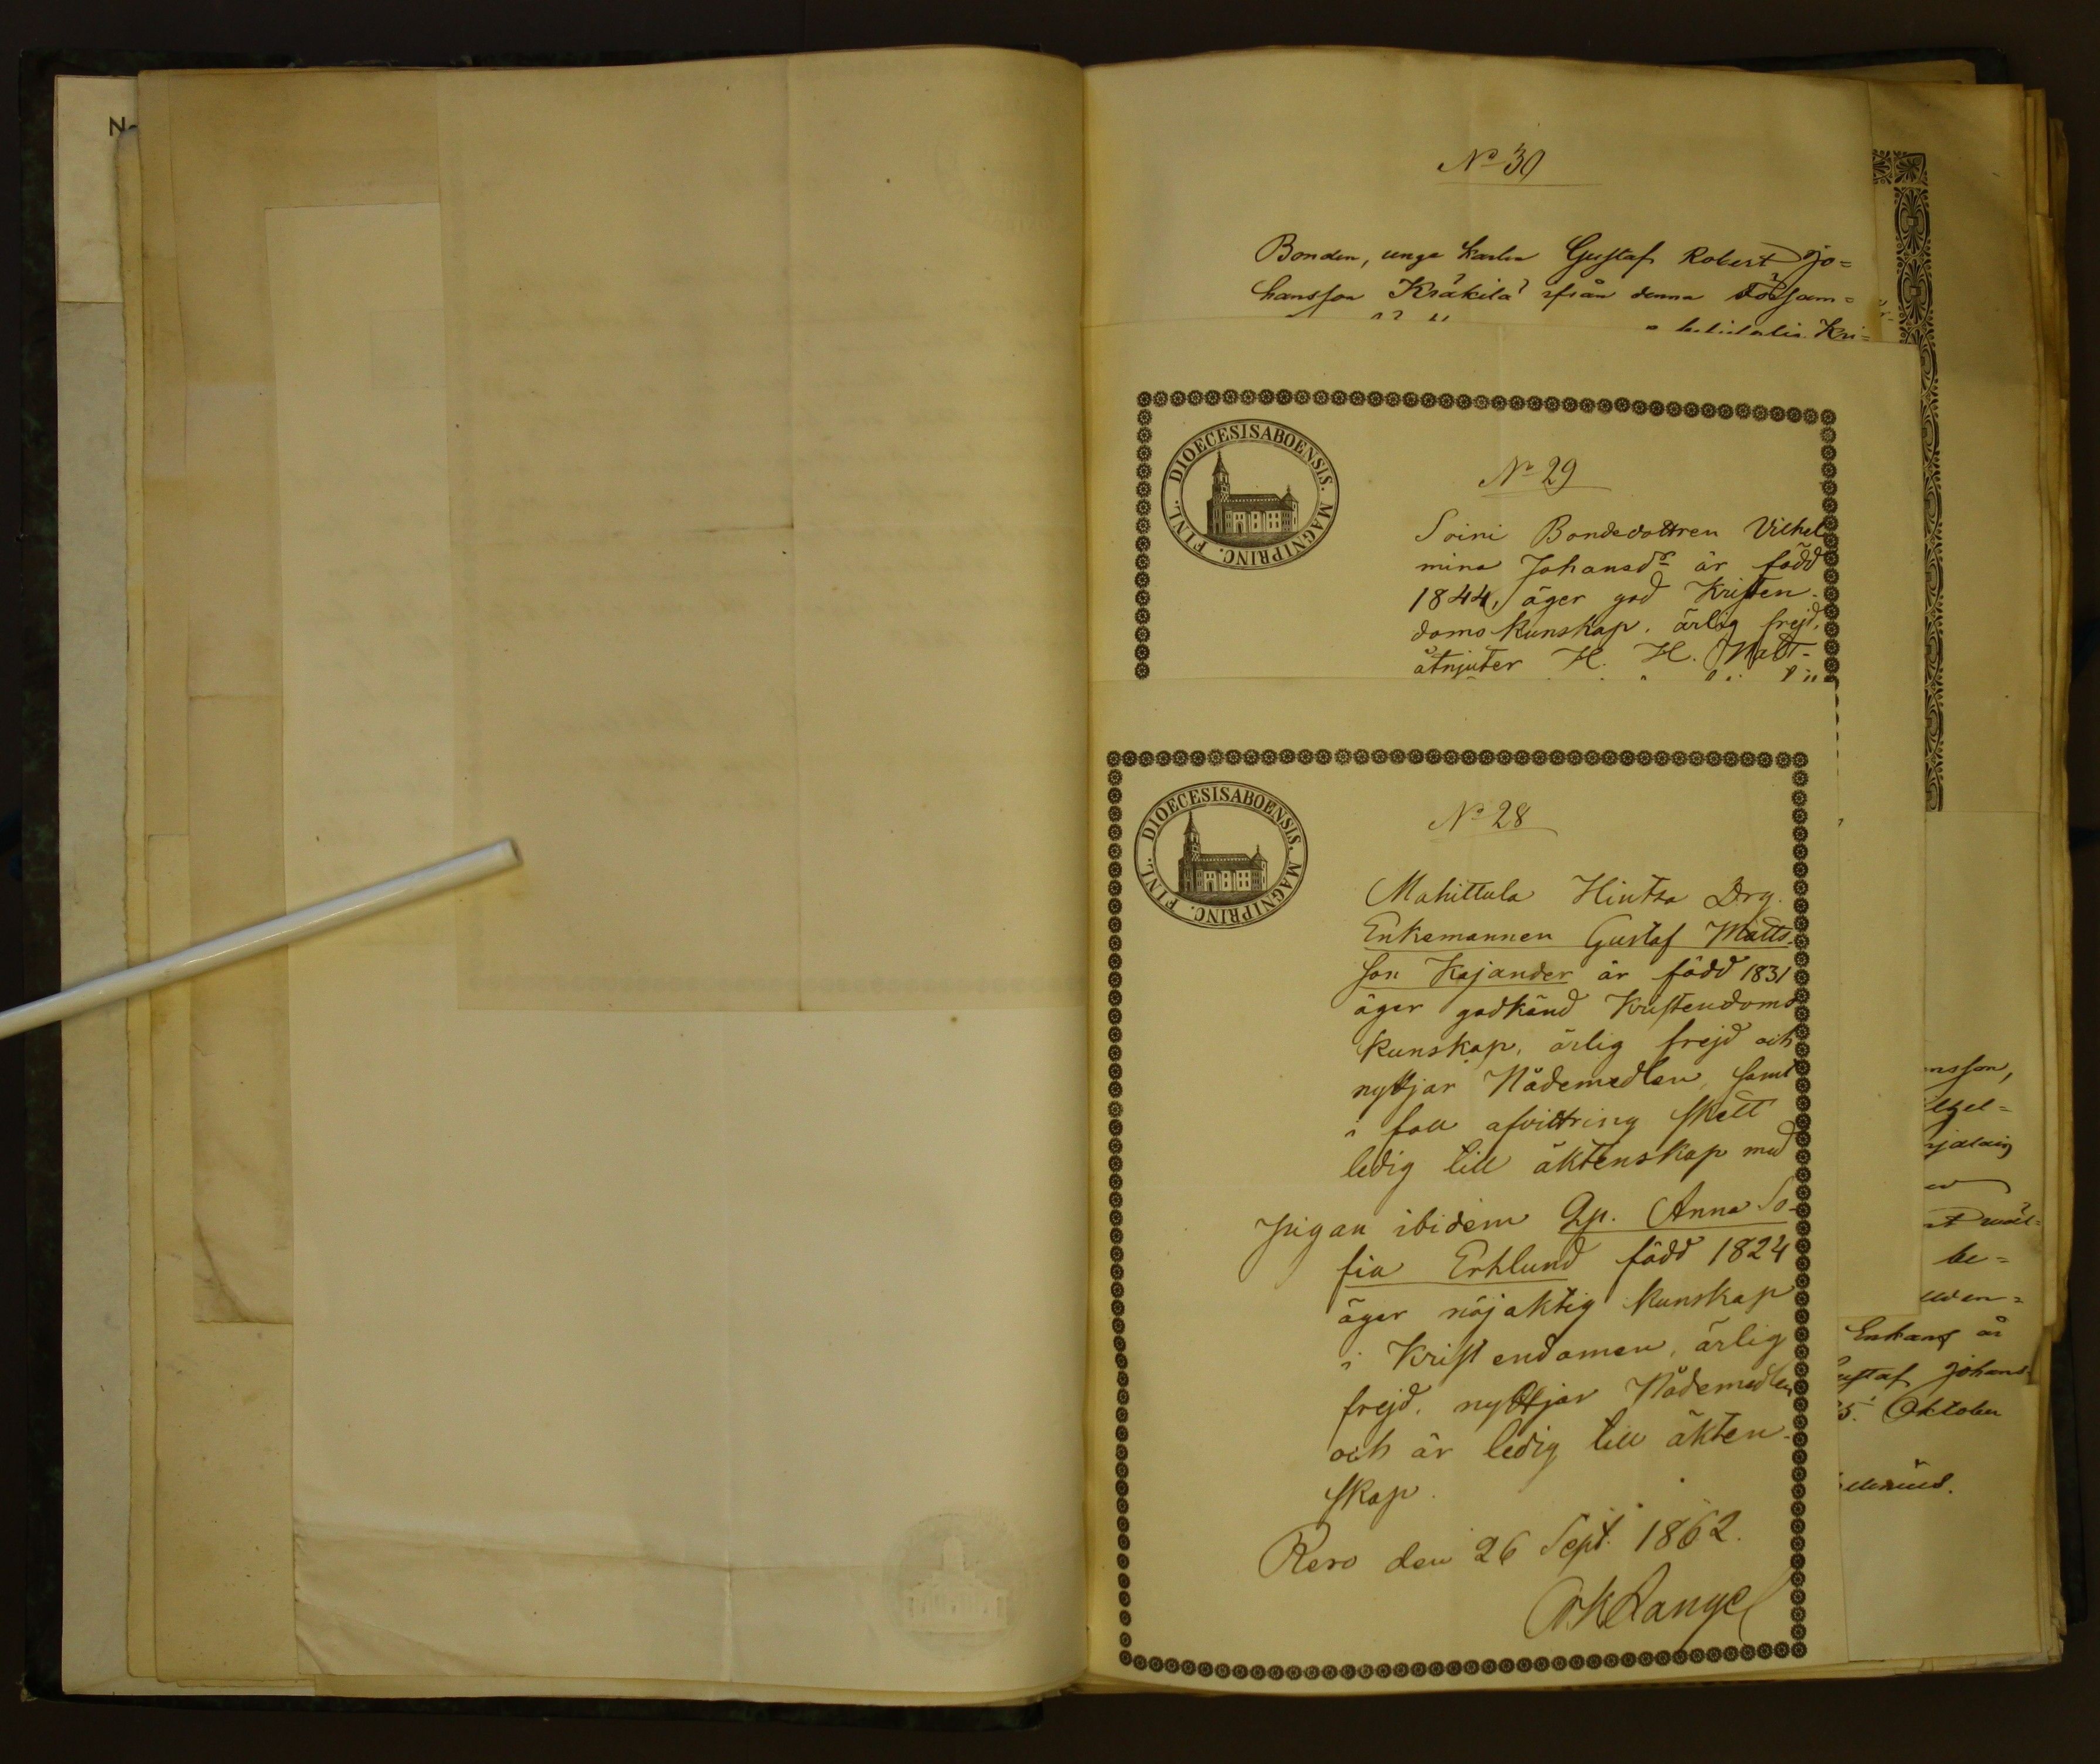 N
No 30
Bonden, unga karlen Gustaf Robert Jo=
hansson Kräkilä ifrån denna Försam=
Kri=
DIOECESIS ABOENSIS. MAGNI PRINC. FINL.
No 29
Soini Bondedottren Vilhel
mina Johansdr är född
1844, äger god Kristen-
doms kunskap, ärlig frejd,
åtnjuter H. H. Natt-
DIOECESIS ABOENSIS. MAGNI PRINC. FINL.
No 28
Mahittula Hintsa Drg.
Enkemannen Gustaf Matts-
son Kajander är född 1831
äger godkänd Kristendoms
kunskap, ärlig frejd och
nyttjar Nådemedlen, samt
i fall afvittring skett
ledig till äktenskap med
pigan ibidem Qp. Anna So-
fia Erhlund född 1824
äger nöjaktig kunskap
i Kristendomen, ärlig
frejd, nyttjar Nådemedlen
och är ledig till äkten-
skap.
Rero den 26 Sept. 1862.
nsson,
be=
Enkans är
ustaf Johans
25. Oktober